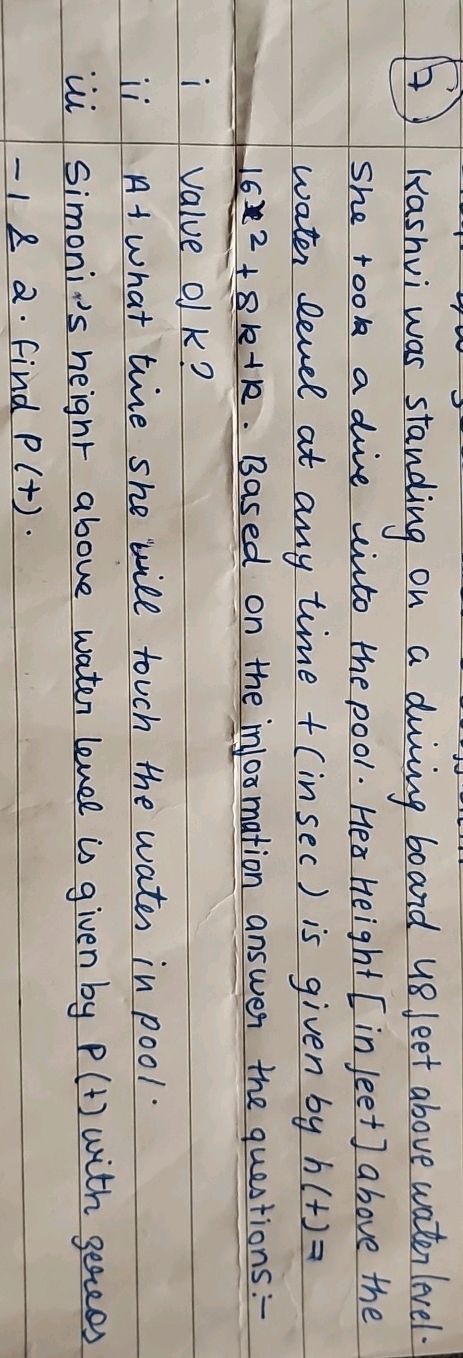 7 Kashvi was standing on a diving board 48 feet above water level.
She took a dive into the pool. Her Height [in feet] above the
water level at any time t (in sec) is given by h(t) =
16x² + 8k + k. Based on the information answer the questions:-
i Value of k?
ii At what time she will touch the water in pool.
iii Simoni's height above water level is given by P(t) with zeroes
-1 & 2. find P(t).